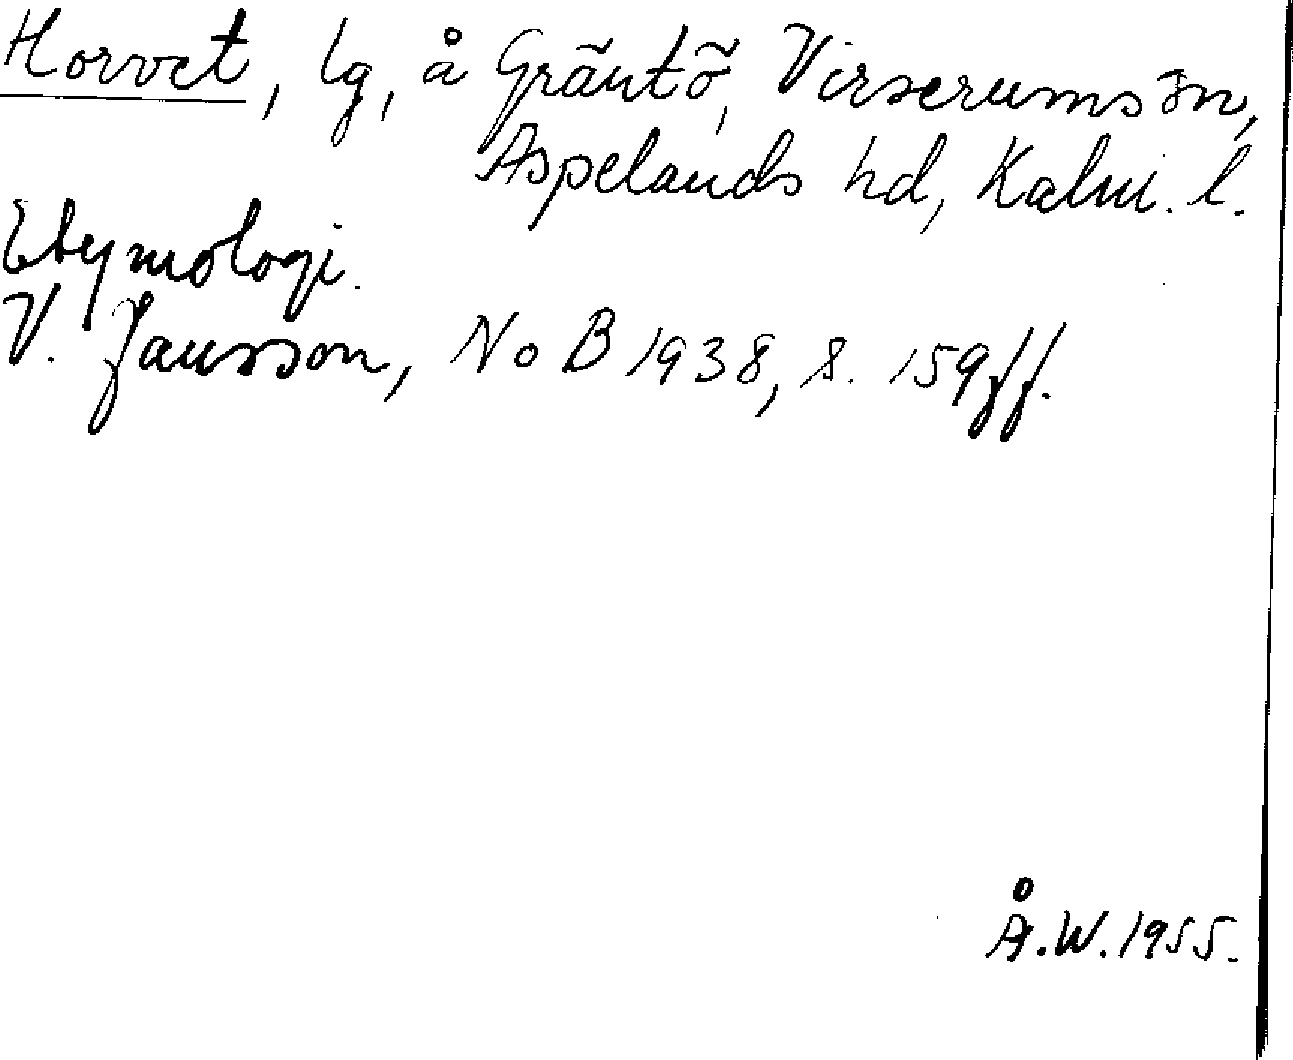 Horvet, lg, å Gräntö, Virserums sn,
Aspelands hd, Kalm. l.
Etymologi.
V. Jansson, NoB 1938, s. 159ff.
Å.W. 1955.